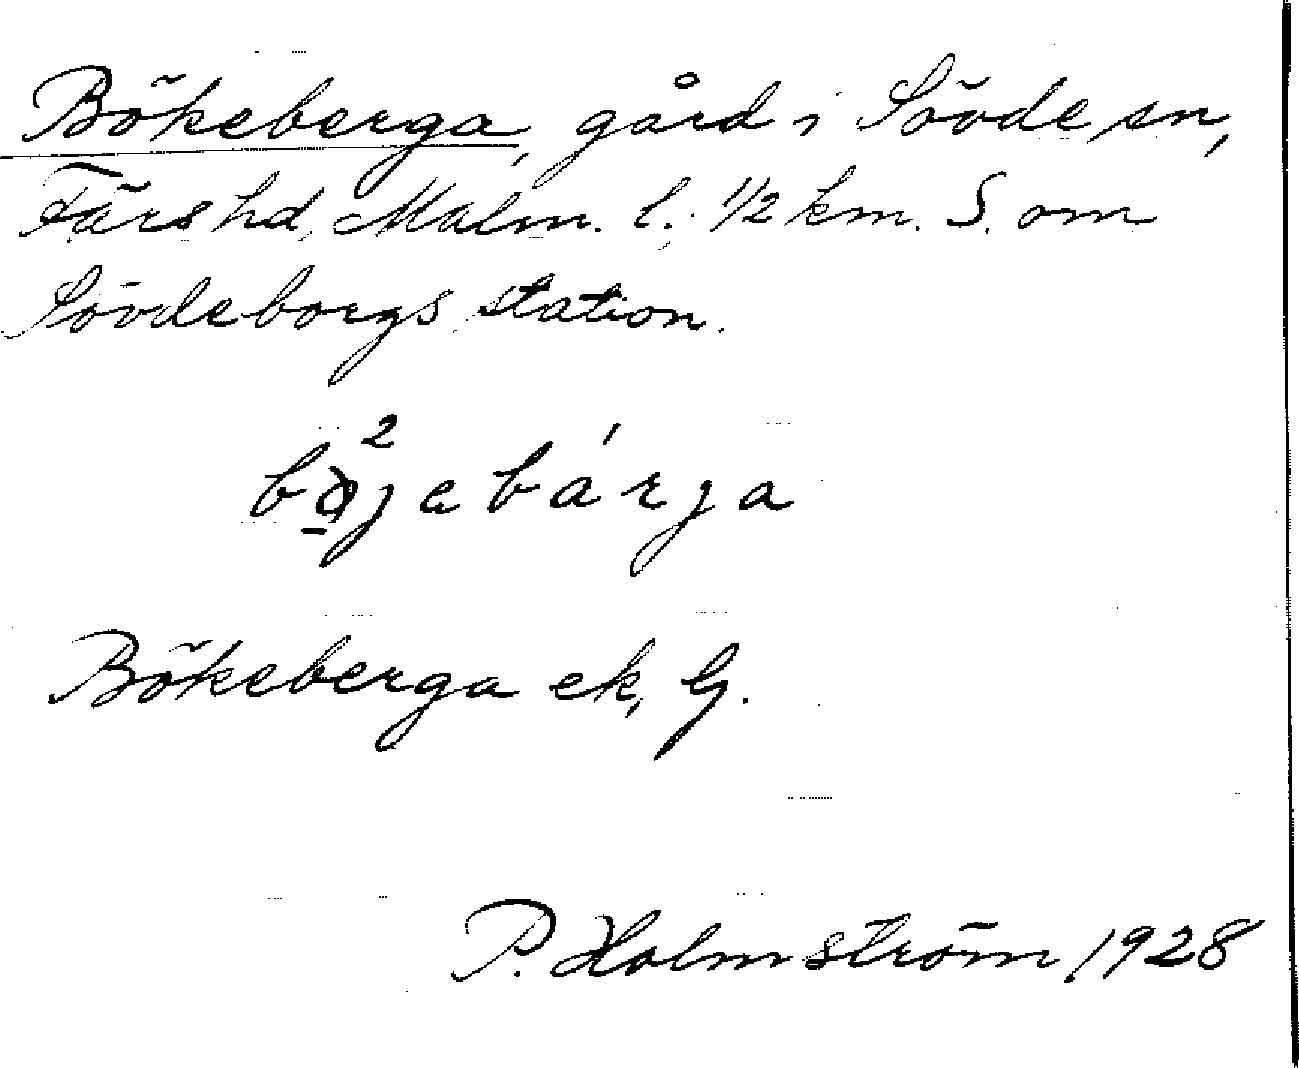 Bökeberga, gård i Sövde sn,
Färs hd, Malm. l. 1/2 km. S. om
Sövdeborgs station.
bø̱²jabá'rja
Bökeberga ek, G.
P. Holmström 1928